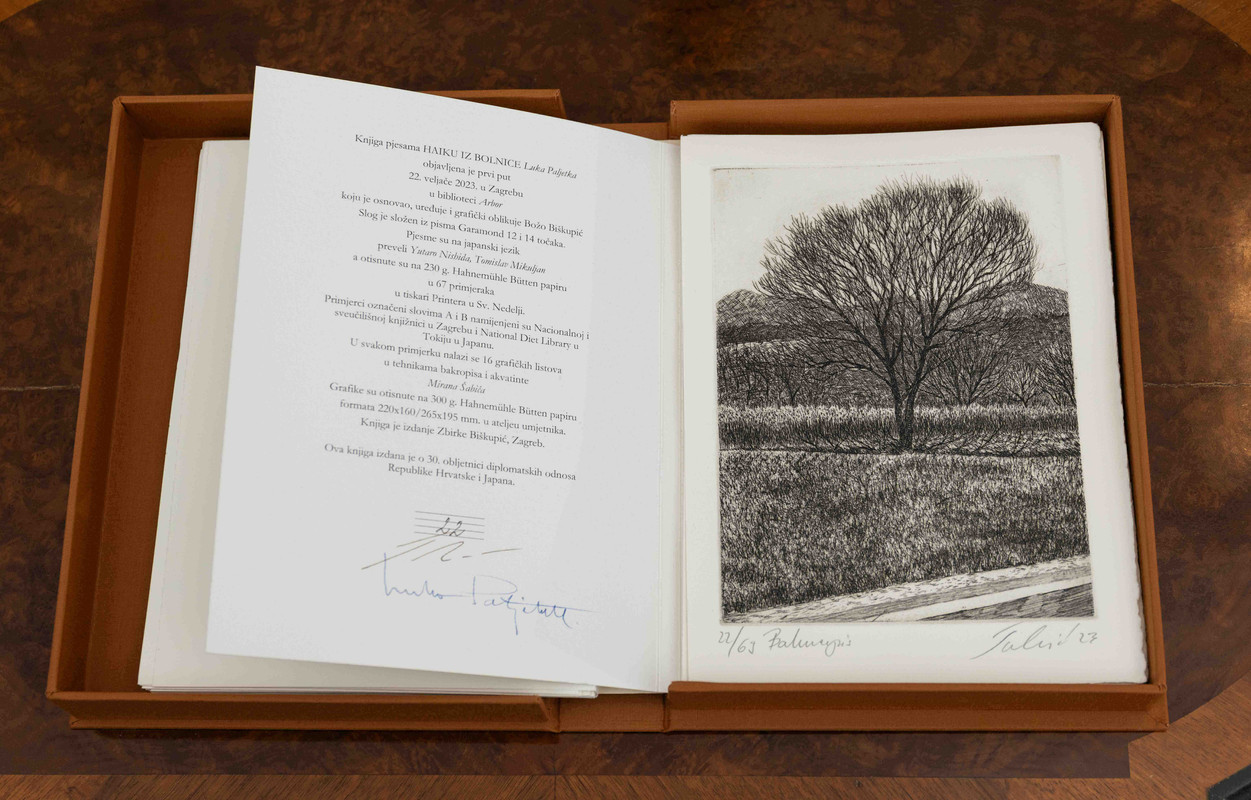 Knjiga pjesama HAIKU IZ BOLNICE Luka Paljetka
objavljena je prvi put
22. veljače 2023. u Zagrebu
u biblioteci Arbor
koju je osnovao, uređuje i grafički oblikuje Božo Biškupić
Slog je složen iz pisma Garamond 12 i 14 točaka.
Pjesme su na japanski jezik
preveli Yutaro Nishida, Tomislav Mikuljan
a otisnute su na 230 g. Hahnemühle Bütten papiru
u 67 primjeraka
u tiskari Printera u Sv. Nedelji.
Primjerci označeni slovima A i B namijenjeni su Nacionalnoj i
sveučilišnoj knjižnici u Zagrebu i National Diet Library u
Tokiju u Japanu.
U svakom primjerku nalazi se 16 grafičkih listova
u tehnikama bakropisa i akvatinte
Mirana Šabića
Grafike su otisnute na 300 g. Hahnemühle Bütten papiru
formata 220x160/265x195 mm. u ateljeu umjetnika.
Knjiga je izdanje Zbirke Biškupić, Zagreb.
Ova knjiga izdana je o 30. obljetnici diplomatskih odnosa
Republike Hrvatske i Japana.
22
Luko Paljetak
22/63 Bakropis
23